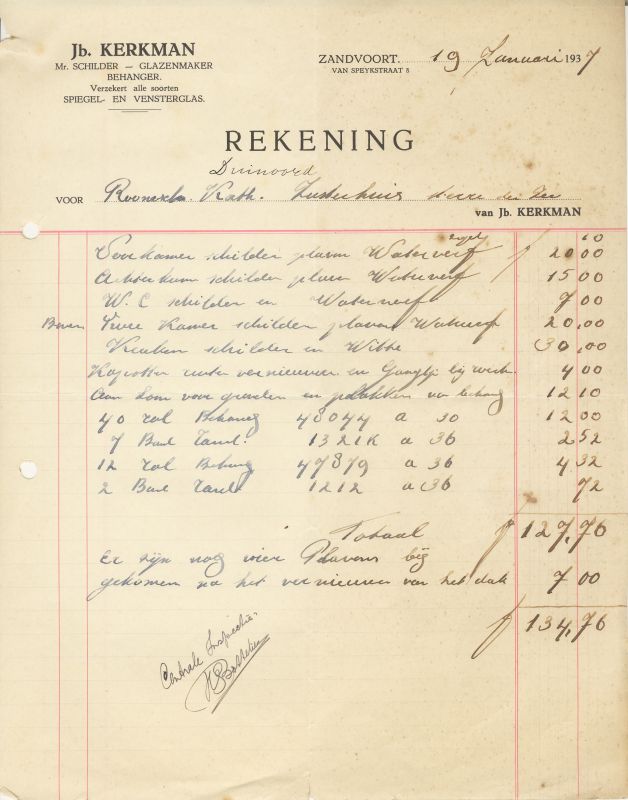 Jb. KERKMAN
Mr. SCHILDER — GLAZENMAKER
BEHANGER.
Verzekert alle soorten
SPIEGEL- EN VENSTERGLAS.
ZANDVOORT. 19 Januari 1937
VAN SPEYKSTRAAT 8
REKENING
Duinoord
VOOR Kath. Zusterhuis
van Jb. KERKMAN
zegel 10
Voorkamer schilder plavon Waterverf f 20 00
Achterkam schilder plavon Waterverf 15 00
W.C schilder en Waterverf 7 00
Boven Twee Kamer schilder plavon Waterverf 20,00
Keuken schilder en Witte 30,00
vernieuwen en bij werk 4 00
Aan Loon voor gronden en plakken van behang 12 10
40 rol Behang 48044 a 30 12 00
7 Band 1321K a 36 2 52
12 rol Behang 47879 a 36 4 32
2 Band 1212 a 36 72
Totaal f 127,76
Er zijn nog vier Plavons bij
gekomen na het vernieuwen van het dak 7 00
f 134,76
Centrale Inspectie